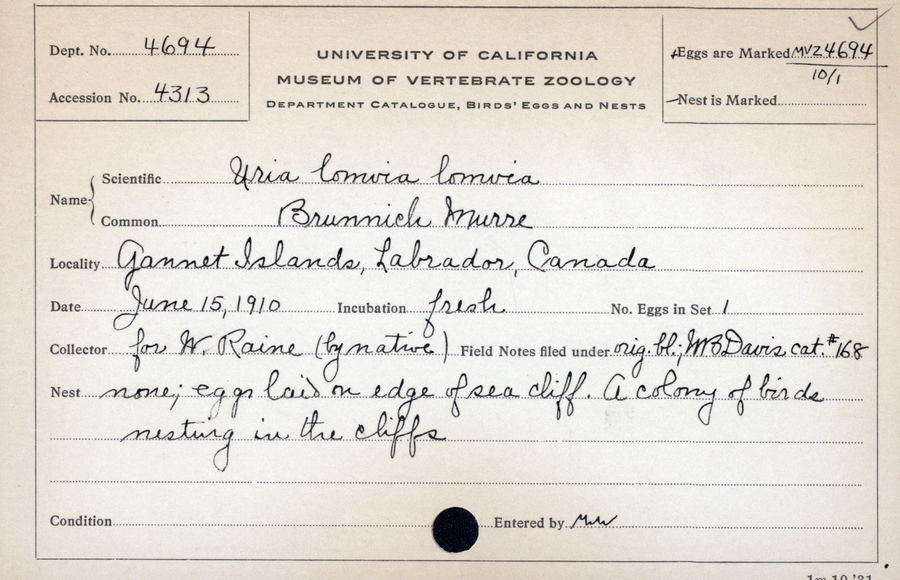 Dept. No. 4694
Accession No. 4313
UNIVERSITY OF CALIFORNIA
MUSEUM OF VERTEBRATE ZOOLOGY
DEPARTMENT CATALOGUE, BIRDS' EGGS AND NESTS
Eggs are Marked MVZ4694
10/1
Nest is Marked
Name
Scientific Uria lomvia lomvia
Common Brunnich Murre
Locality Gannet Islands, Labrador, Canada
Date June 15, 1910 Incubation fresh No. Eggs in Set 1
Collector for W. Raine (by native) Field Notes filed under orig. bl; MBDavis cat. #168
Nest none; eggs laid on edge of sea cliff. A colony of birds
nesting in the cliffs
Condition Entered by
1m 10 '31